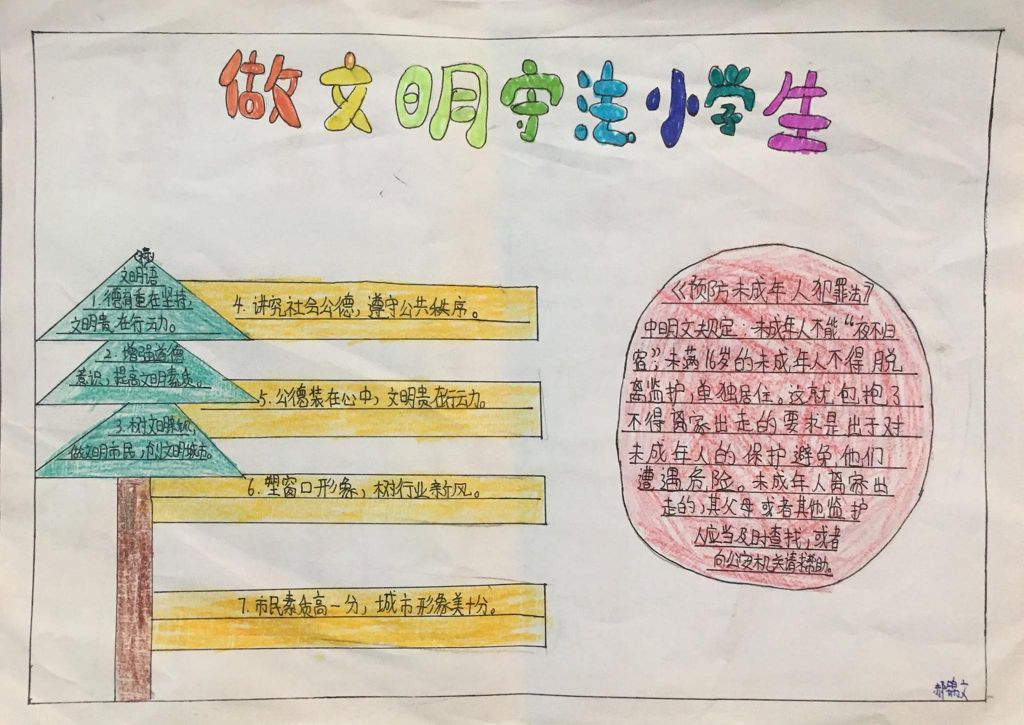 做文明守法小学生
文明语
1.德育重在坚持,
文明贵在行动。
2.增强道德
意识,提高文明素质。
3.树文明新风,
做文明市民,创文明城市。
4.讲究社会公德,遵守公共秩序。
5.公德装在心中,文明贵在行动。
6.塑窗口形象,树行业新风。
7.市民素质高一分,城市形象美十分。
《预防未成年人犯罪法》
中明文规定:未成年人不能“夜不归
宿”;未满16岁的未成年人不得脱
离监护,单独居住。这就包抱了
不得离家出走的要求是出于对
未成年人的保护避免他们
遭遇危险。未成年人离家出
走的,其父母或者其他监护
人应当及时查找,或者
向公安机关请求帮助。